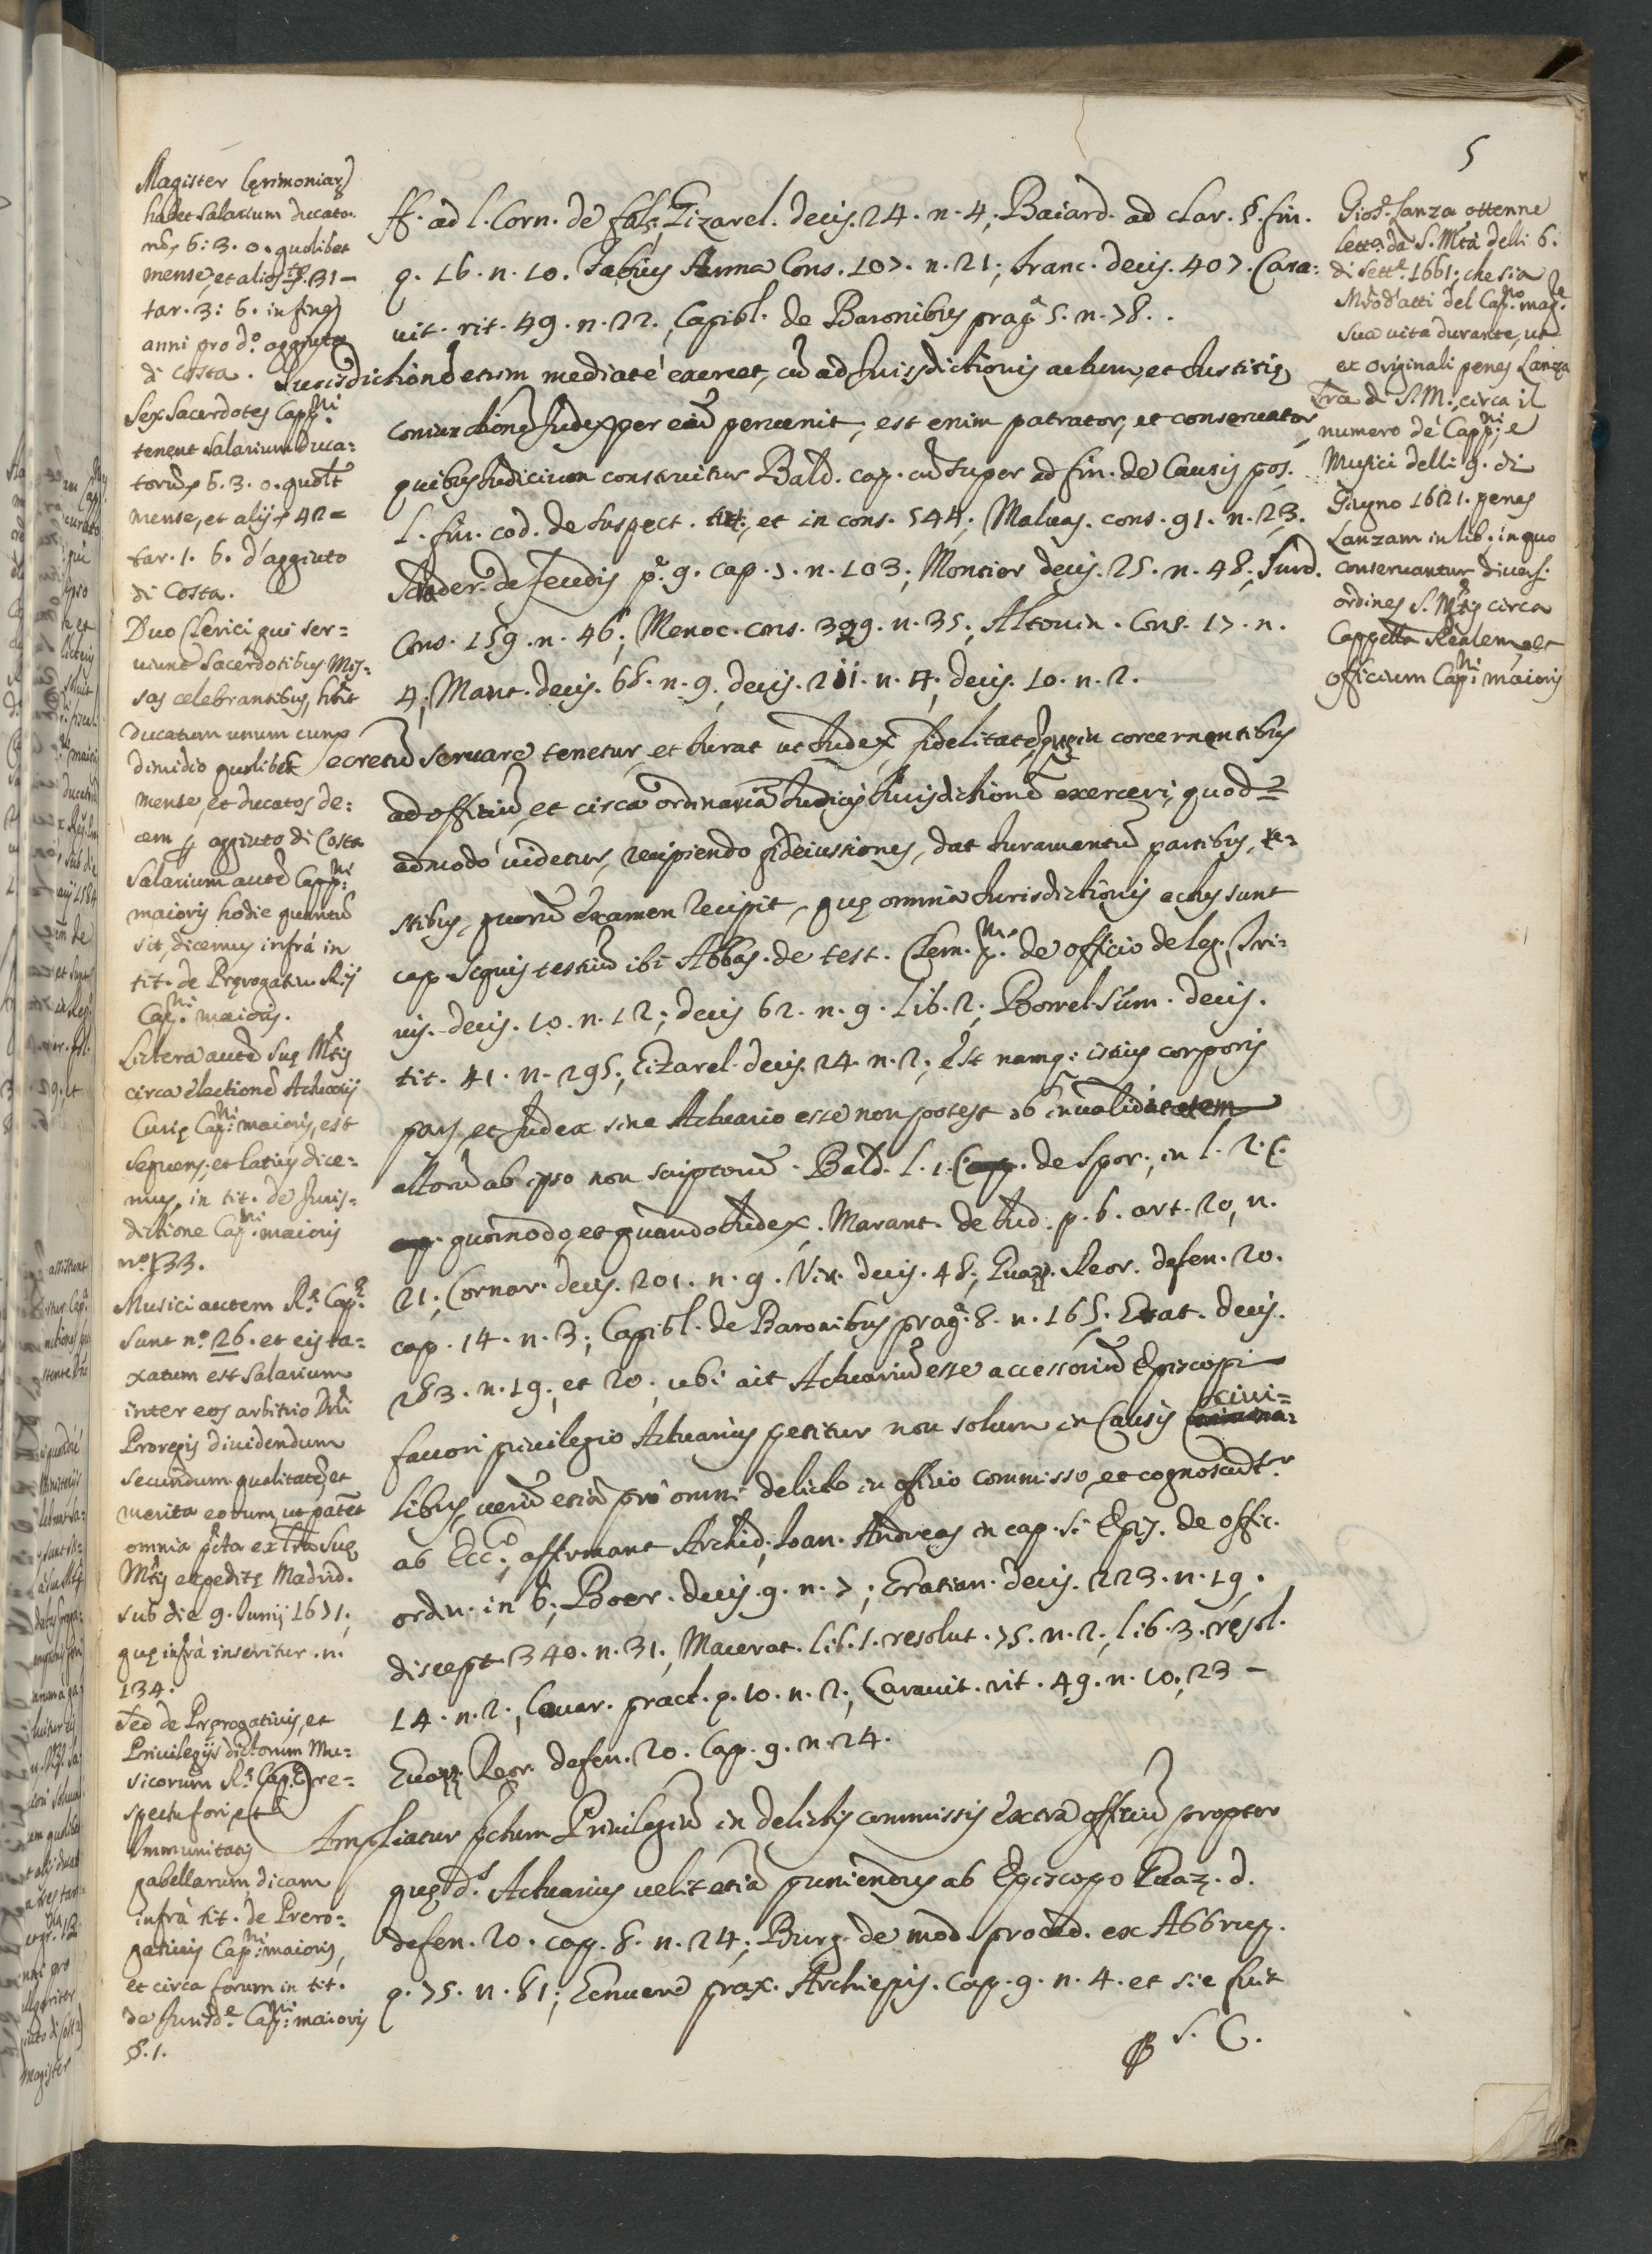 5
Magister Cęrimoniarū
habet salarium ducato-
rū, 6: 3. 0. quolibet
mense, et alios 31 -
tar. 3: 6. in fine
anni pro d.º aggiuto
di Costa.
Sex Sacerdotes Capp.ni
tenent salarium duca-
torū, 6. 3. 0. quolt
mense, et alij 42 =
tar. 1. 6. d'aggiuto
di Costa.
Duo Clerici qui ser=
uiunt Sacerdotibus Mis=
sas celebrantibus, hñt
ducatum unum cum
dimidio quolibet
mense, et ducatos de:
cem aggiuto di Costa
Salarium autē Capp.ni
maioris hodie quantū
sit, dicemus infrà in
tit. de Pręrogatiu. Rij
Cap.ni maioris.
Littera autē Suę Mtis
circa electionē Actuarij
Curię Cap.ni maioris, est
sequens, et latius dice=
mus, in tit. de Juris=
dictione Cap.ni maioris
n.º 133.
Musici autem R.ę Cap.ę
sunt n.º 26. et eis ta=
xatum est salarium
inter eos arbitrio Dñi
Proregis diuidendum
secundum qualitatē, et
merita eorum, ut patet
omnia pñta ex lrã Suę
Mtis expeditę Madrid.
sub die 9. Junij 1671.
quę infrà inseritur. n.
134.
Sed de Pręrogatiuis, et
Priuilegijs dictorum Mu=
sicorum R.ę Cap.ę re=
spectu fori, et
Immunitatis
gabellarum, dicam
infrà tit. de Prero=
gatiuis Cap.ni maioris,
et circa forum in tit.
de Jurisd.e Cap.ni maioris
§. 1.
ff. ad l. Corn. de fals; Gizarel. decis. 24. n. 4; Baiard. ad Clar. §. fin.
q. 16. n. 10. Fabius Anna Cons. 107. n. 21; Franc. decis. 407. Cara:
uit. rit. 49. n. 22. Capibl. de Baronibus prag. 5. n. 78..
Jurisdictionē etiam mediatè exercet, cū ad Jurisdictionis actum, et Justitię
coniunctionē Judex per eū peruenit, est enim patrator, et conseruator
quibus Judicium construitur Bald. cap. cū super ad fin. de Causis pos.
l. fin. cod. de suspect. tut; et in cons. 544; Maluas. cons. 91. n. 23.
de feudis p.ª 9. cap. 7. n. 103; Montior decis. 25. n. 48; Surd.
Cons. 159. n. 46; Menoc. cons. 399. n. 35; Altouin. Cons. 17. n.
4; Mant. decis. 68. n. 9, decis. 211. n. 4, decis. 10. n. 2.
Secretū seruare tenetur, et Jurat ut Judex fidelitatē in concernentibus
ad officiū, et circa ordinariā Judicis Jurisdictionē exerceri, quod=
admodò uidetur, recipiendo fideiussiones, dat Juramentū partibus, te=
stibus, quorū examen recipit, quę omnia Jurisdictionis actus sunt
cap. si quis testiū ibi Abbas. de test. Clem. de officio deleg; Tri=
uis. decis. 10. n. 12; decis 62. n. 9. lib. 2; Borrel. sum. decis.
tit. 41. n. 295; Gizarel. decis. 24. n. 2; est namq: istius corporis
pars, et Judex sine Actuario esse non potest ob inualiditatem
actorū ab ipso non scriptorū. Bald. l. 1. C. de Spor; in l. 2. C.
quomodo, et quando Judex. Marant. de Jud. p. 6. art. 20, n.
21; Cornar. decis. 201. n. 9. Viu. decis. 48; Guazz. Reor. defen. 20.
cap. 14. n. 3; Capibl. de Baronibus prag. 8. n. 165. Grat. decis.
283. n. 19; et 20; ubi ait Actuariū esse accessoriū Episcopi
fauori priuilegio Actuarius petitur non solum in Causis ciui=
libus, uerū etiā prò omni delicto in officio commisso, et cognoscūt.r
ab Ecc.ª; affirmant Archid; Joan. Andreas in cap. si Epis. de offic.
ordin. in 6; Boer. decis. 9. n. 7; Gratian. decis. 223. n. 19.
discept. 340. n. 31; Macerat. lib. 1. resolut. 75. n. 2; lib. 3. resol.
14. n. 2; Couar. pract. q. 10. n. 2; Carauit. rit. 49. n. 10, 23 -
Guazz. Reor. defen. 20. Cap. 9. n. 24.
Ampliatur pctum Priuilegiū in delictis commissis extra officiū propter
quę d.s Actuarius uelit etiā puniendus ab Episcopo Guaz. d.
defen. 20. cap. 8. n. 24; Burg. de mod. proced. ex Abbrup.
q. 75. n. 81; Genuen. prax. Archiepis. Cap. 9. n. 4. et sic fuit
S. C.
Gios.e Lanza ottenne
lett.a da S. Mtà delli 6.
di Sett.e 1661. che sia
Mrõ d'atti del Cap.no mag.e
sua vita durante, ut
ex originali penes Lanza
Lrã di S. M. circa il
numero de' Capp.ni, e
Musici delli 9. di
Giugno 1621. penes
Lanzam in lib. in quo
conseruantur diuers.
ordines S. Mtis circa
Cappellã Realem, et
officium Cap.ni maioris